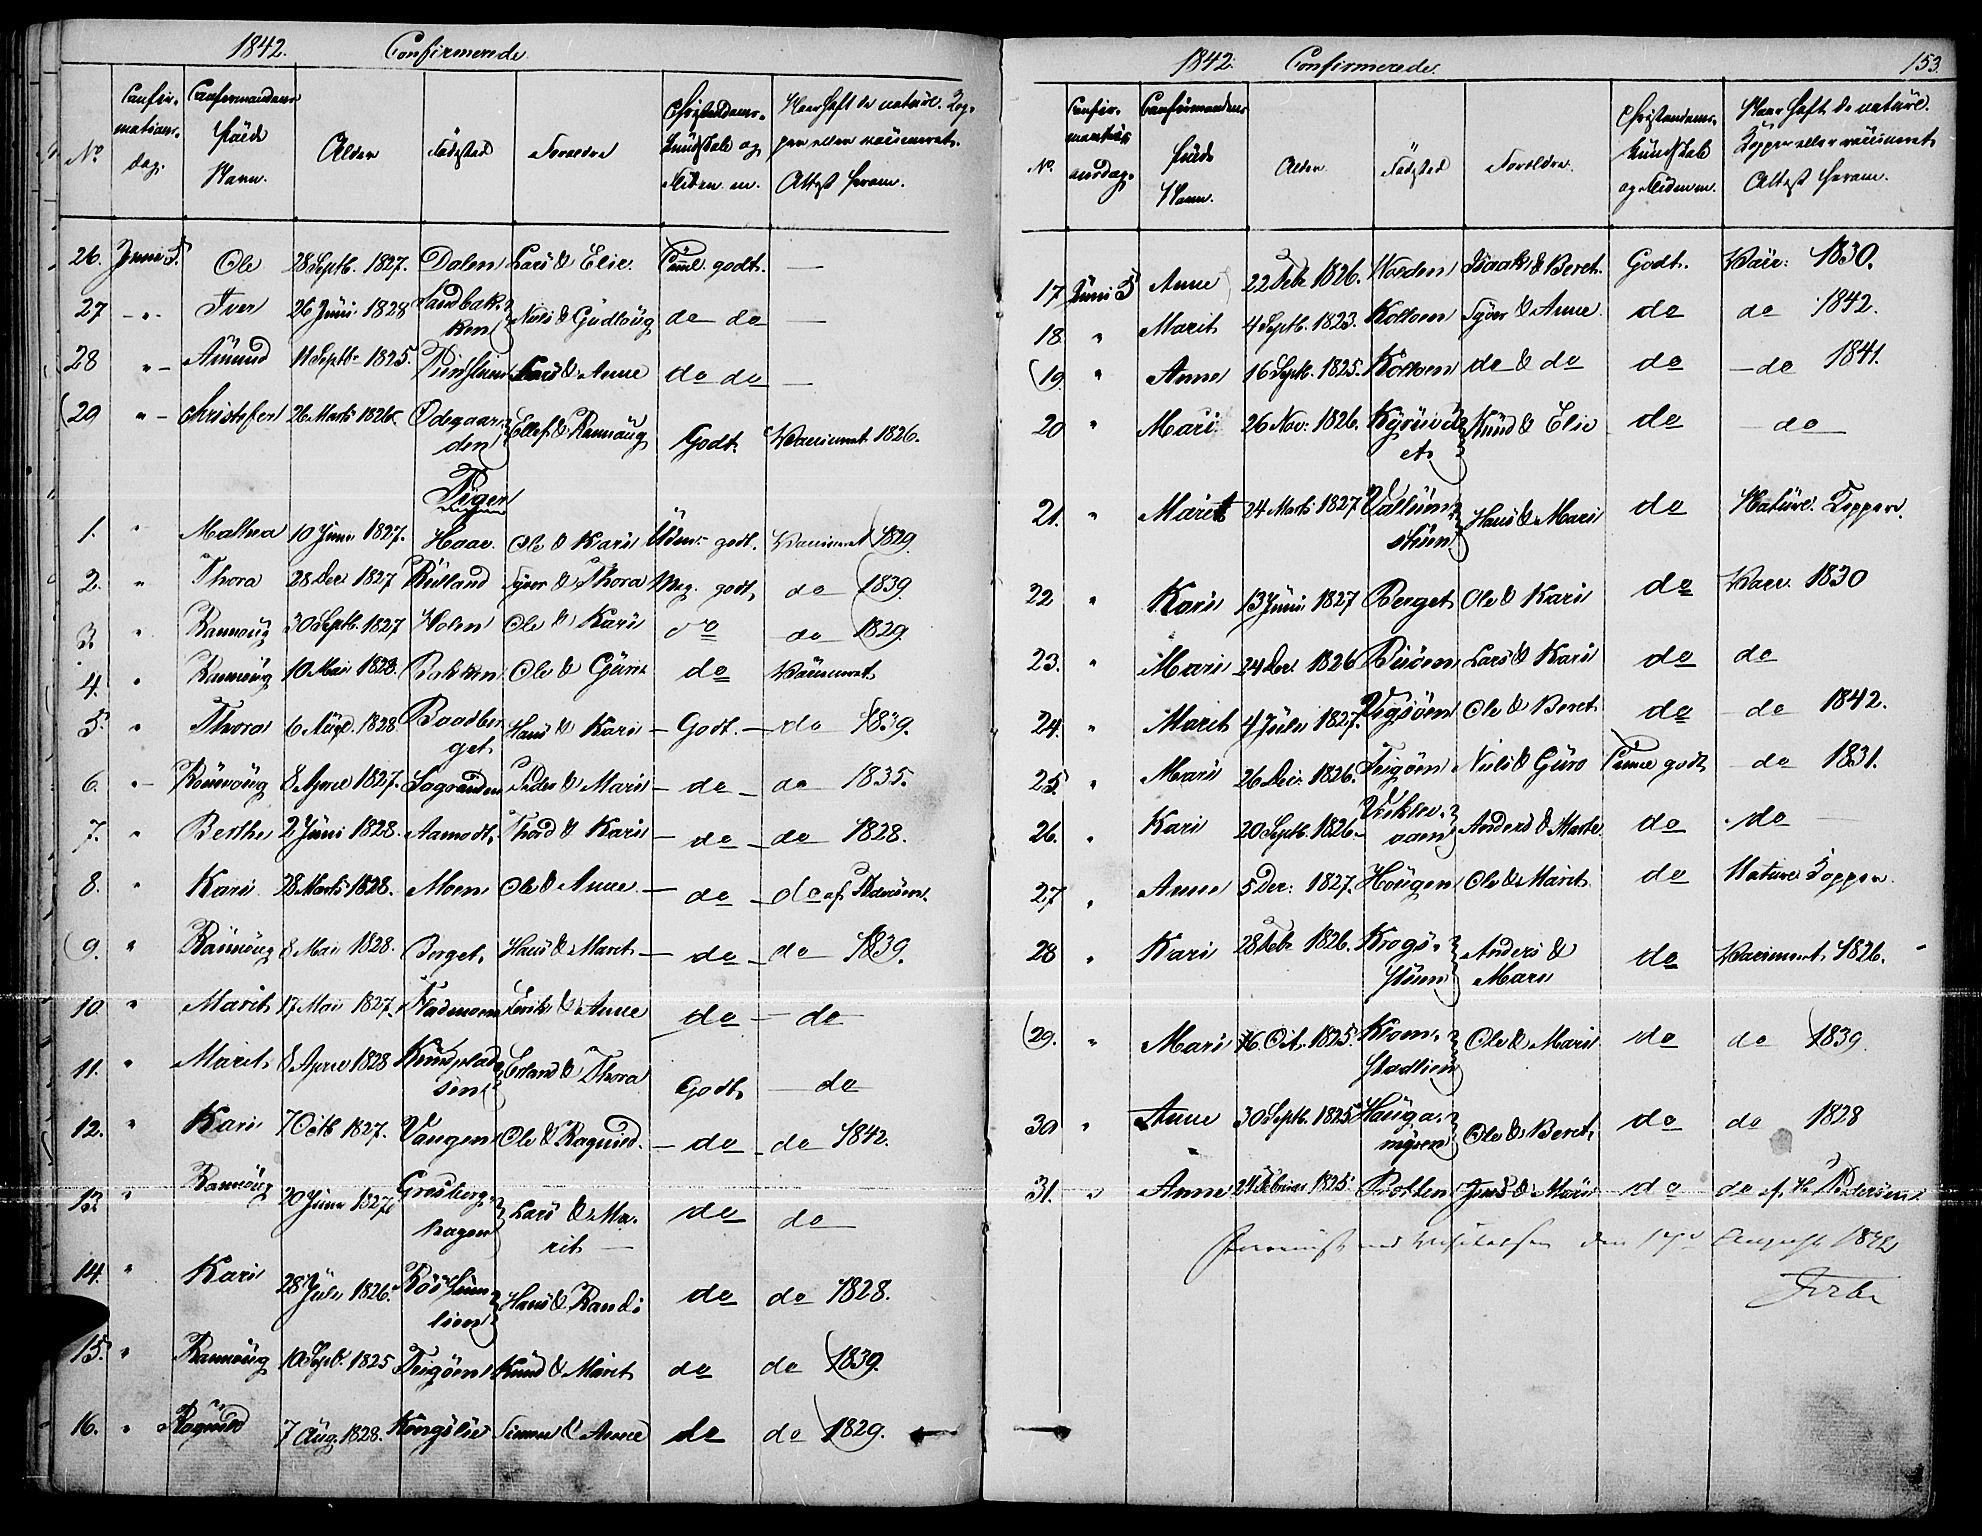 1842. Confirmerede
No. Confirmationsdag. Confirmandens fulde Navn. Alder Fødested Forældre Christendoms-Kundskab og Fliden m. Naar haft de naturl. Kopper eller vaccinerede. Attest herom.
26. Juni 5. Ole 28 Septb. 1827. Dalen Lars & Elie. godt. —
27 — " — Iver 26 Juni 1828 Sandbakken Niels & Gudloug do do —
28 " — Amund 11 Septb. 1825. Lars & Anne do do —
(29 " — Christofer 26 Marts 1826 Odegaarden Ellef & Rannoug Godt. Vaccineret 1826.
Piger
1. " Mathea 10 Juni 1827. Haae. Ole & Kari godt. Vaccineret 1829.
2. " Thora 28 Dec. 1827 Rusland Syver & Thora Meg. godt, do 1839.
3 " Rannoug 30 Septb. 1827 Volen Ole & Kari do do 1829.
4. " Rannoug 10 Mai 1828. Bakken Ole & Guri do Vaccineret
5. " Thora 6 Aug. 1828 Baadberget Hans & Kari — Godt. — do 1839.
6. " — Rannoug 8 April 1827. Sagranden Peder & Mari — do — do 1835.
7. " Berthe 2 Juni 1828. Aamodt. Thord & Kari — do — do 1828.
8. " Kari 28 Marts 1828. Moen Ole & Anne — do — do af Pedersen.
(9. " Rannoug 8 Mai 1828. Berget. Hans & Marit — do — do 1839.
10. " Marit 17 Mai 1827. Flademoen & Anne do — do
11. " Marit 8 April 1828 Erland & Thora Godt — do
12. " Kari 7 Octb. 1827. Vangen Ole & Ragnild. — do — do 1842.
13. " Rannoug 20 Juni 1827. Grosberghagen Lars & Marit — do do
14. " Kari 28 Juli 1826. Hans & Randi do do 1828.
15. " Rannoug 10 Septb. 1825 Teigøen Knud & Marit do do 1839.
16. " Ragnild 7 Aug. 1828. Kongslie Simen & Anne do do 1829.
1842. Confirmerede. 153.
No. Confirmationsdag. Confirmandens fulde Navn. Alder Fødested Forældre. Christendoms-Kundskab og Fliden m. Naar haft de naturl. Kopper eller vaccineret. Attest herom.
17 Juni 5 Anne 22 Febr. 1826. Norden Isaak & Beret. Godt. Vacc. 1830.
18. " Marit 4 Septb. 1823. Kolloen Syver & Anne. do do 1842.
(19. " Anne 16 Septb. 1825. Kolloen do & do do — do 1841.
20 " Mari 26 Nov. 1826. Kyrüdet Knud & Elie do — do —
21. " Marit 24 Marts 1827 Hans & Mari do Naturl. Kopper.
22 " Kari 13 Juni 1827 Berget Ole & Kari do Vacc. 1830
23. " Mari 24 Dec. 1826 Lars & Kari do do
24. " Marit 4 Juli 1827. Ole & Beret do — do 1842.
25. " Mari 26 Dec. 1826. Teigøen Niels & Guro godt — do 1831.
26. " Kari 20 Septb. 1826 — Anders & Marte. do do —
27 " Anne 5 Dec. 1827. Hougen Ole & Marit do Naturl. Kopper
28 " Kari 28 Febr. 1826. Anders & Mari do Vaccineret 1826. -
(29. " Mari 16 Oct. 1825. Ole & Mari do do 1839.
30 " Anne 30 Septb. 1825 Haugamyren Ole & Beret. do do 1828
31. " Anne 24 Februar 1825. Jens & Mari do do af H Pedersen
ved Visitatsen den August 1842